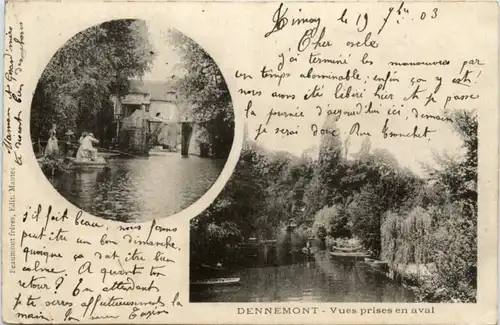 Limay le 19 7bre 03
Cher oncle
j'ai terminé les manœuvres par
un temps abominable; enfin ça y est!
nous avons été libéré hier et je passe
la journée d'aujourd'hui ici, demain
je serai donc Rue Tronchet
s'il fait beau, nous ferons
peut être un bon dimanche,
quoique ça ait l'air
calme. A quand ton
retour? En attendant
je te serre affectueusement la main
Maman et Grand'mère
Beaumont frères, Edit. Mantes
DENNEMONT - Vues prises en aval